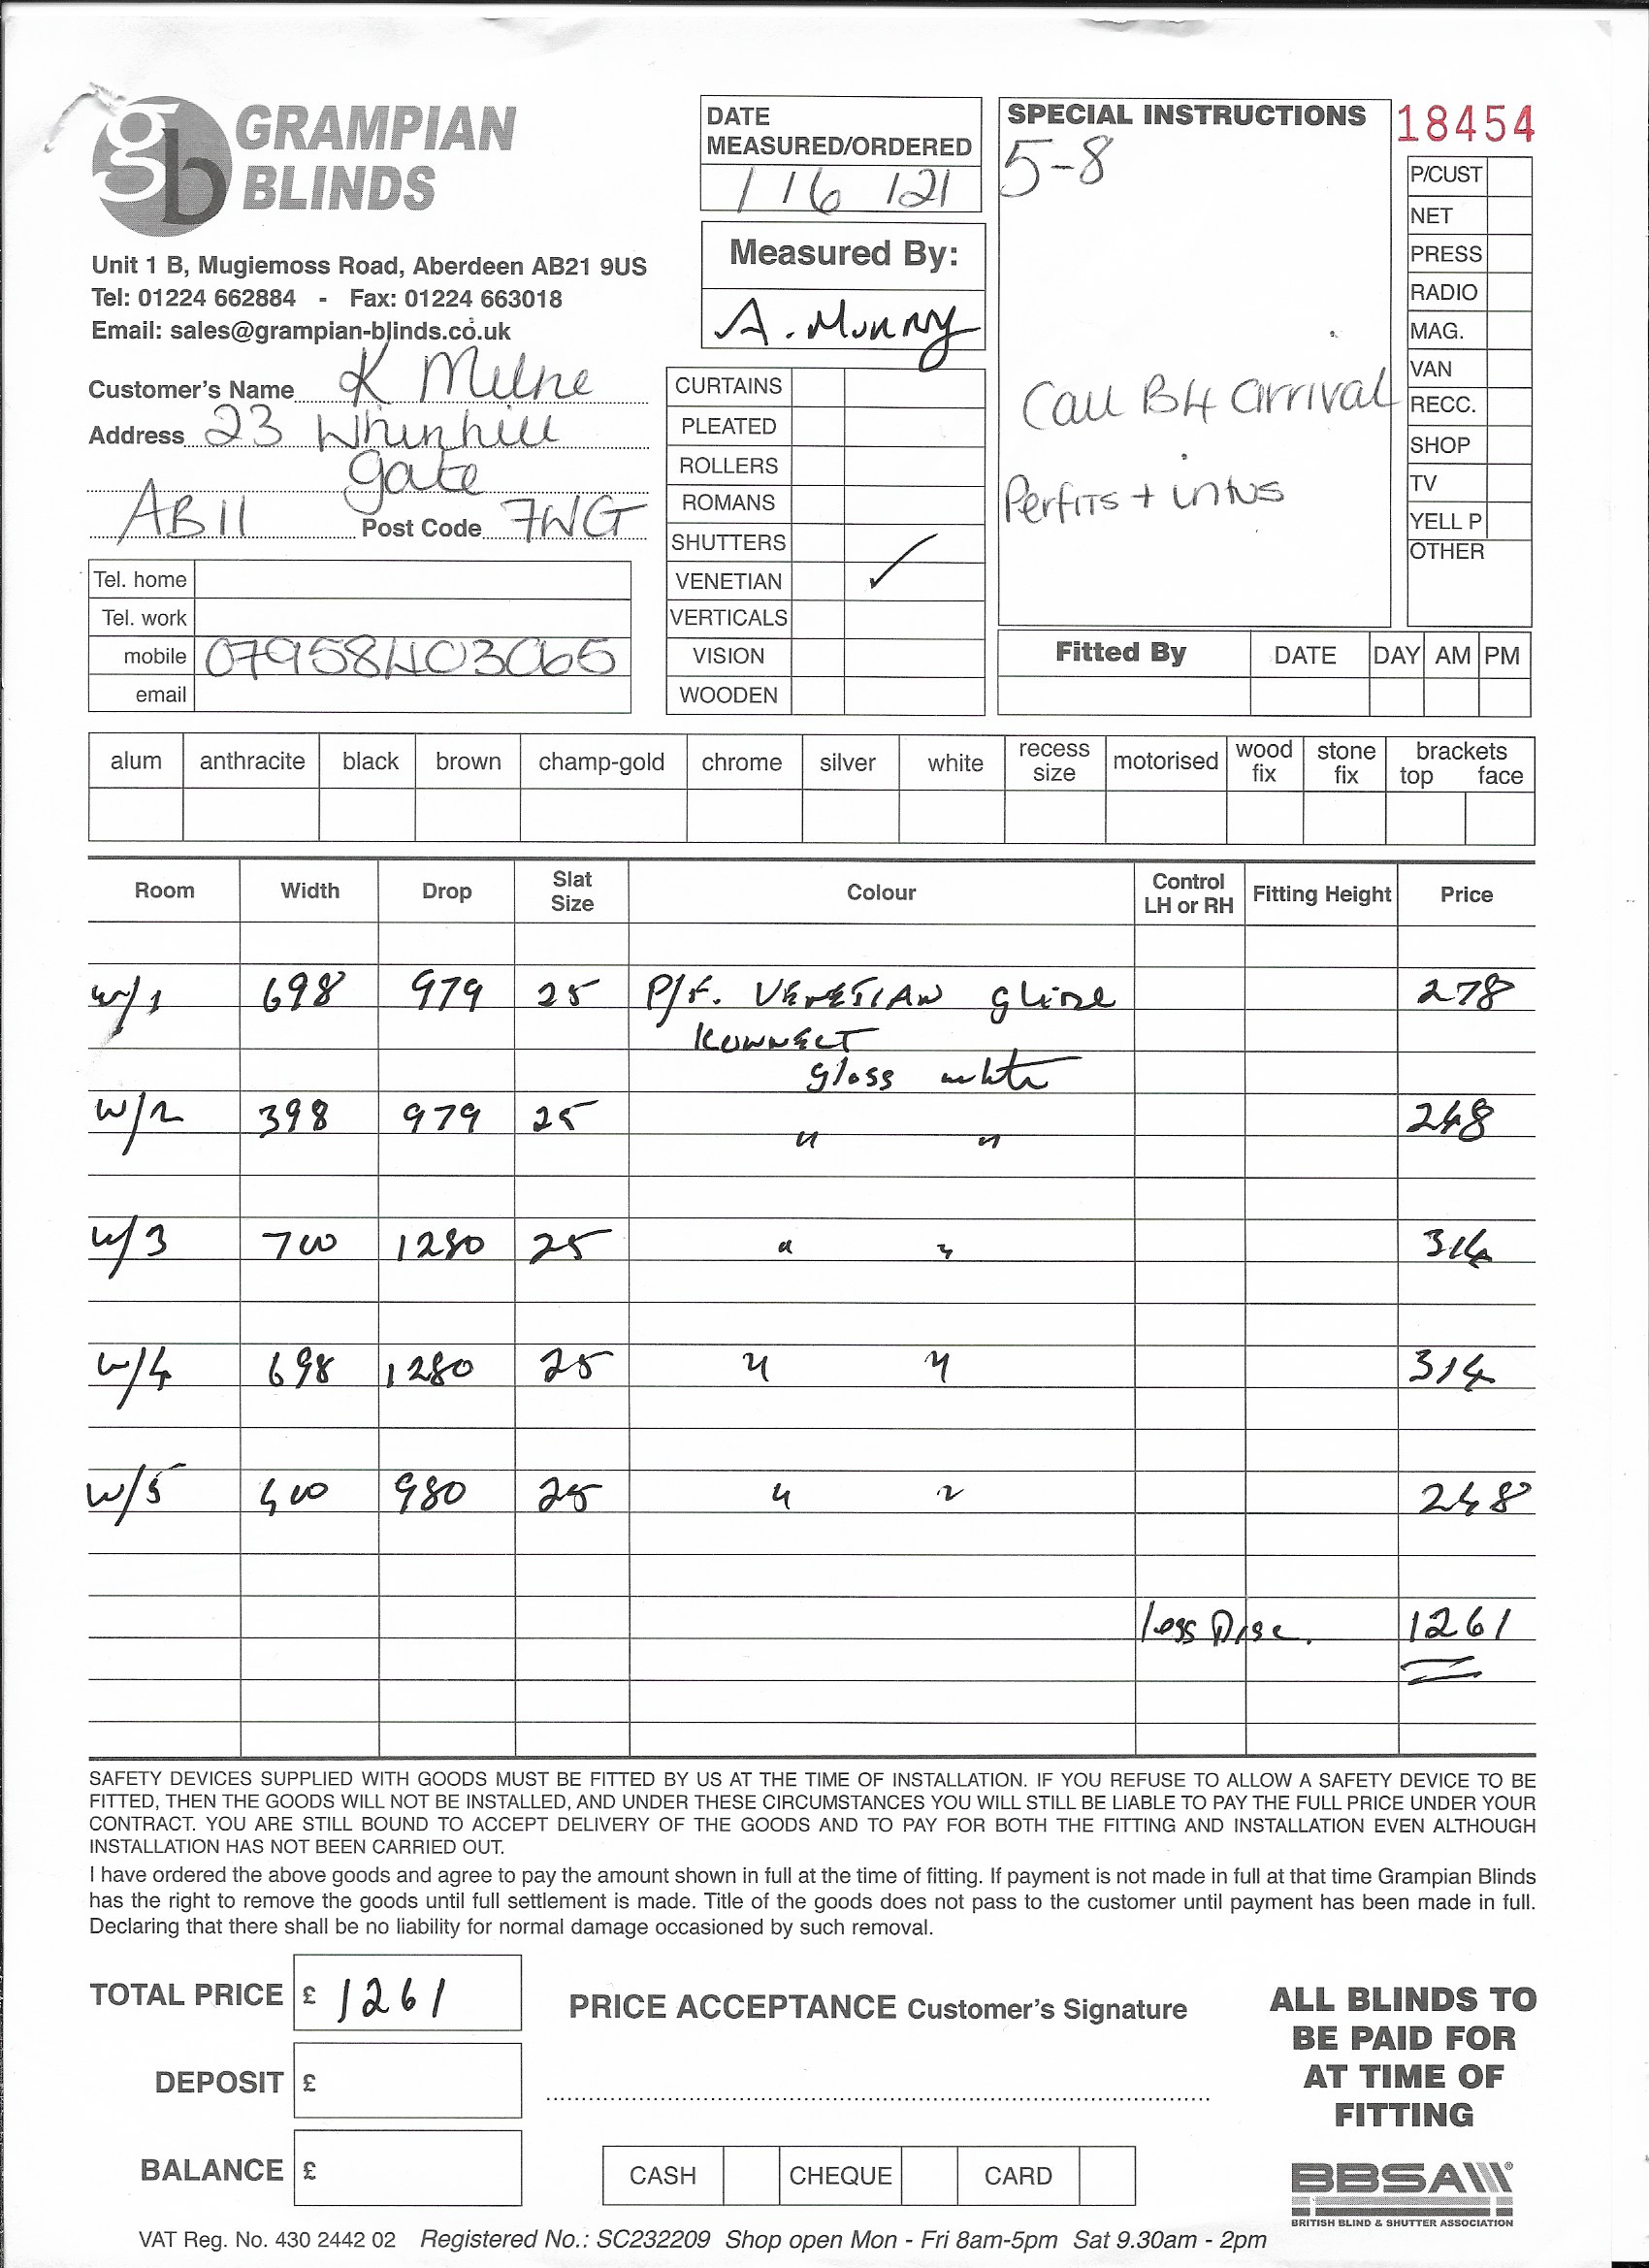 gb GRAMPIAN BLINDS
Unit 1 B, Mugiemoss Road, Aberdeen AB21 9US
Tel: 01224 662884 - Fax: 01224 663018
Email: sales@grampian-blinds.co.uk
Customer's Name K Milne
Address 23 Whinhill
gate
AB11 Post Code 7WG
Tel. home
Tel. work
mobile
email
DATE
MEASURED/ORDERED
1/6/21
Measured By:
A. Murray
CURTAINS
PLEATED
ROLLERS
ROMANS
SHUTTERS
VENETIAN ✓
VERTICALS
VISION
WOODEN
SPECIAL INSTRUCTIONS
5-8
Call B4 arrival
Perfits + intus
18454
P/CUST
NET
PRESS
RADIO
MAG.
VAN
RECC.
SHOP
TV
YELL P
OTHER
Fitted By DATE DAY AM PM
alum anthracite black brown champ-gold chrome silver white recess size motorised wood fix stone fix brackets top face
Room Width Drop Slat Size Colour Control LH or RH Fitting Height Price
W/1 698 979 25 P/F. VENETIAN glide 278
KONNECT
gloss white
W/2 398 979 25 " " 248
W/3 700 1280 25 " " 314
W/4 698 1280 25 " " 314
W/5 400 980 25 " " 248
less Disc. 1261
SAFETY DEVICES SUPPLIED WITH GOODS MUST BE FITTED BY US AT THE TIME OF INSTALLATION. IF YOU REFUSE TO ALLOW A SAFETY DEVICE TO BE
FITTED, THEN THE GOODS WILL NOT BE INSTALLED, AND UNDER THESE CIRCUMSTANCES YOU WILL STILL BE LIABLE TO PAY THE FULL PRICE UNDER YOUR
CONTRACT. YOU ARE STILL BOUND TO ACCEPT DELIVERY OF THE GOODS AND TO PAY FOR BOTH THE FITTING AND INSTALLATION EVEN ALTHOUGH
INSTALLATION HAS NOT BEEN CARRIED OUT.
I have ordered the above goods and agree to pay the amount shown in full at the time of fitting. If payment is not made in full at that time Grampian Blinds
has the right to remove the goods until full settlement is made. Title of the goods does not pass to the customer until payment has been made in full.
Declaring that there shall be no liability for normal damage occasioned by such removal.
TOTAL PRICE £ 1261
DEPOSIT £
BALANCE £
PRICE ACCEPTANCE Customer's Signature
CASH CHEQUE CARD
ALL BLINDS TO
BE PAID FOR
AT TIME OF
FITTING
BBSA
BRITISH BLIND & SHUTTER ASSOCIATION
VAT Reg. No. 430 2442 02 Registered No.: SC232209 Shop open Mon - Fri 8am-5pm Sat 9.30am - 2pm